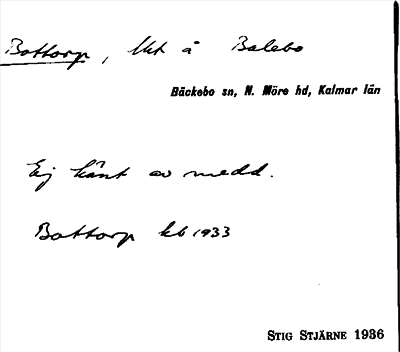 Bottorp, lht å Balebo
Bäckebo sn, N. Möre hd, Kalmar län
Ej känt av medd.
Bottorp kb 1933
STIG STJÄRNE 1936